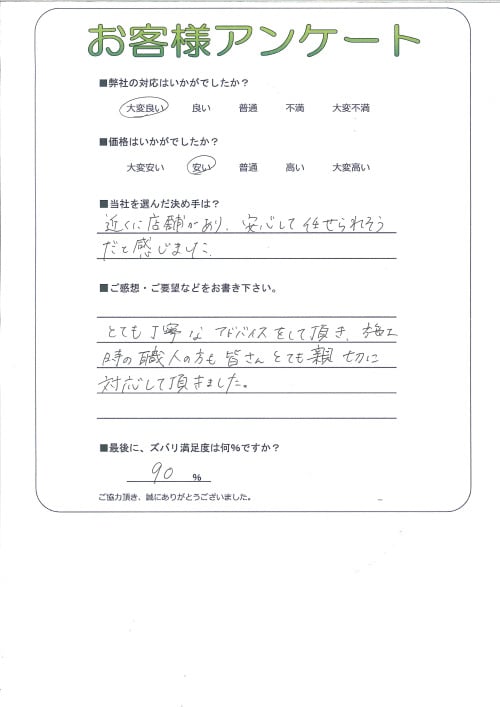 お客様アンケート
■弊社の対応はいかがでしたか？
大変良い 良い 普通 不満 大変不満
■価格はいかがでしたか？
大変安い 安い 普通 高い 大変高い
■当社を選んだ決め手は？
近くに店舗があり、安心して任せられそう
だと感じました。
■ご感想・ご要望などをお書き下さい。
とても丁寧なアドバイスをして頂き、施工
時の職人の方も皆さんとても親切に
対応して頂きました。
■最後に、ズバリ満足度は何％ですか？
90 ％
ご協力頂き、誠にありがとうございました。